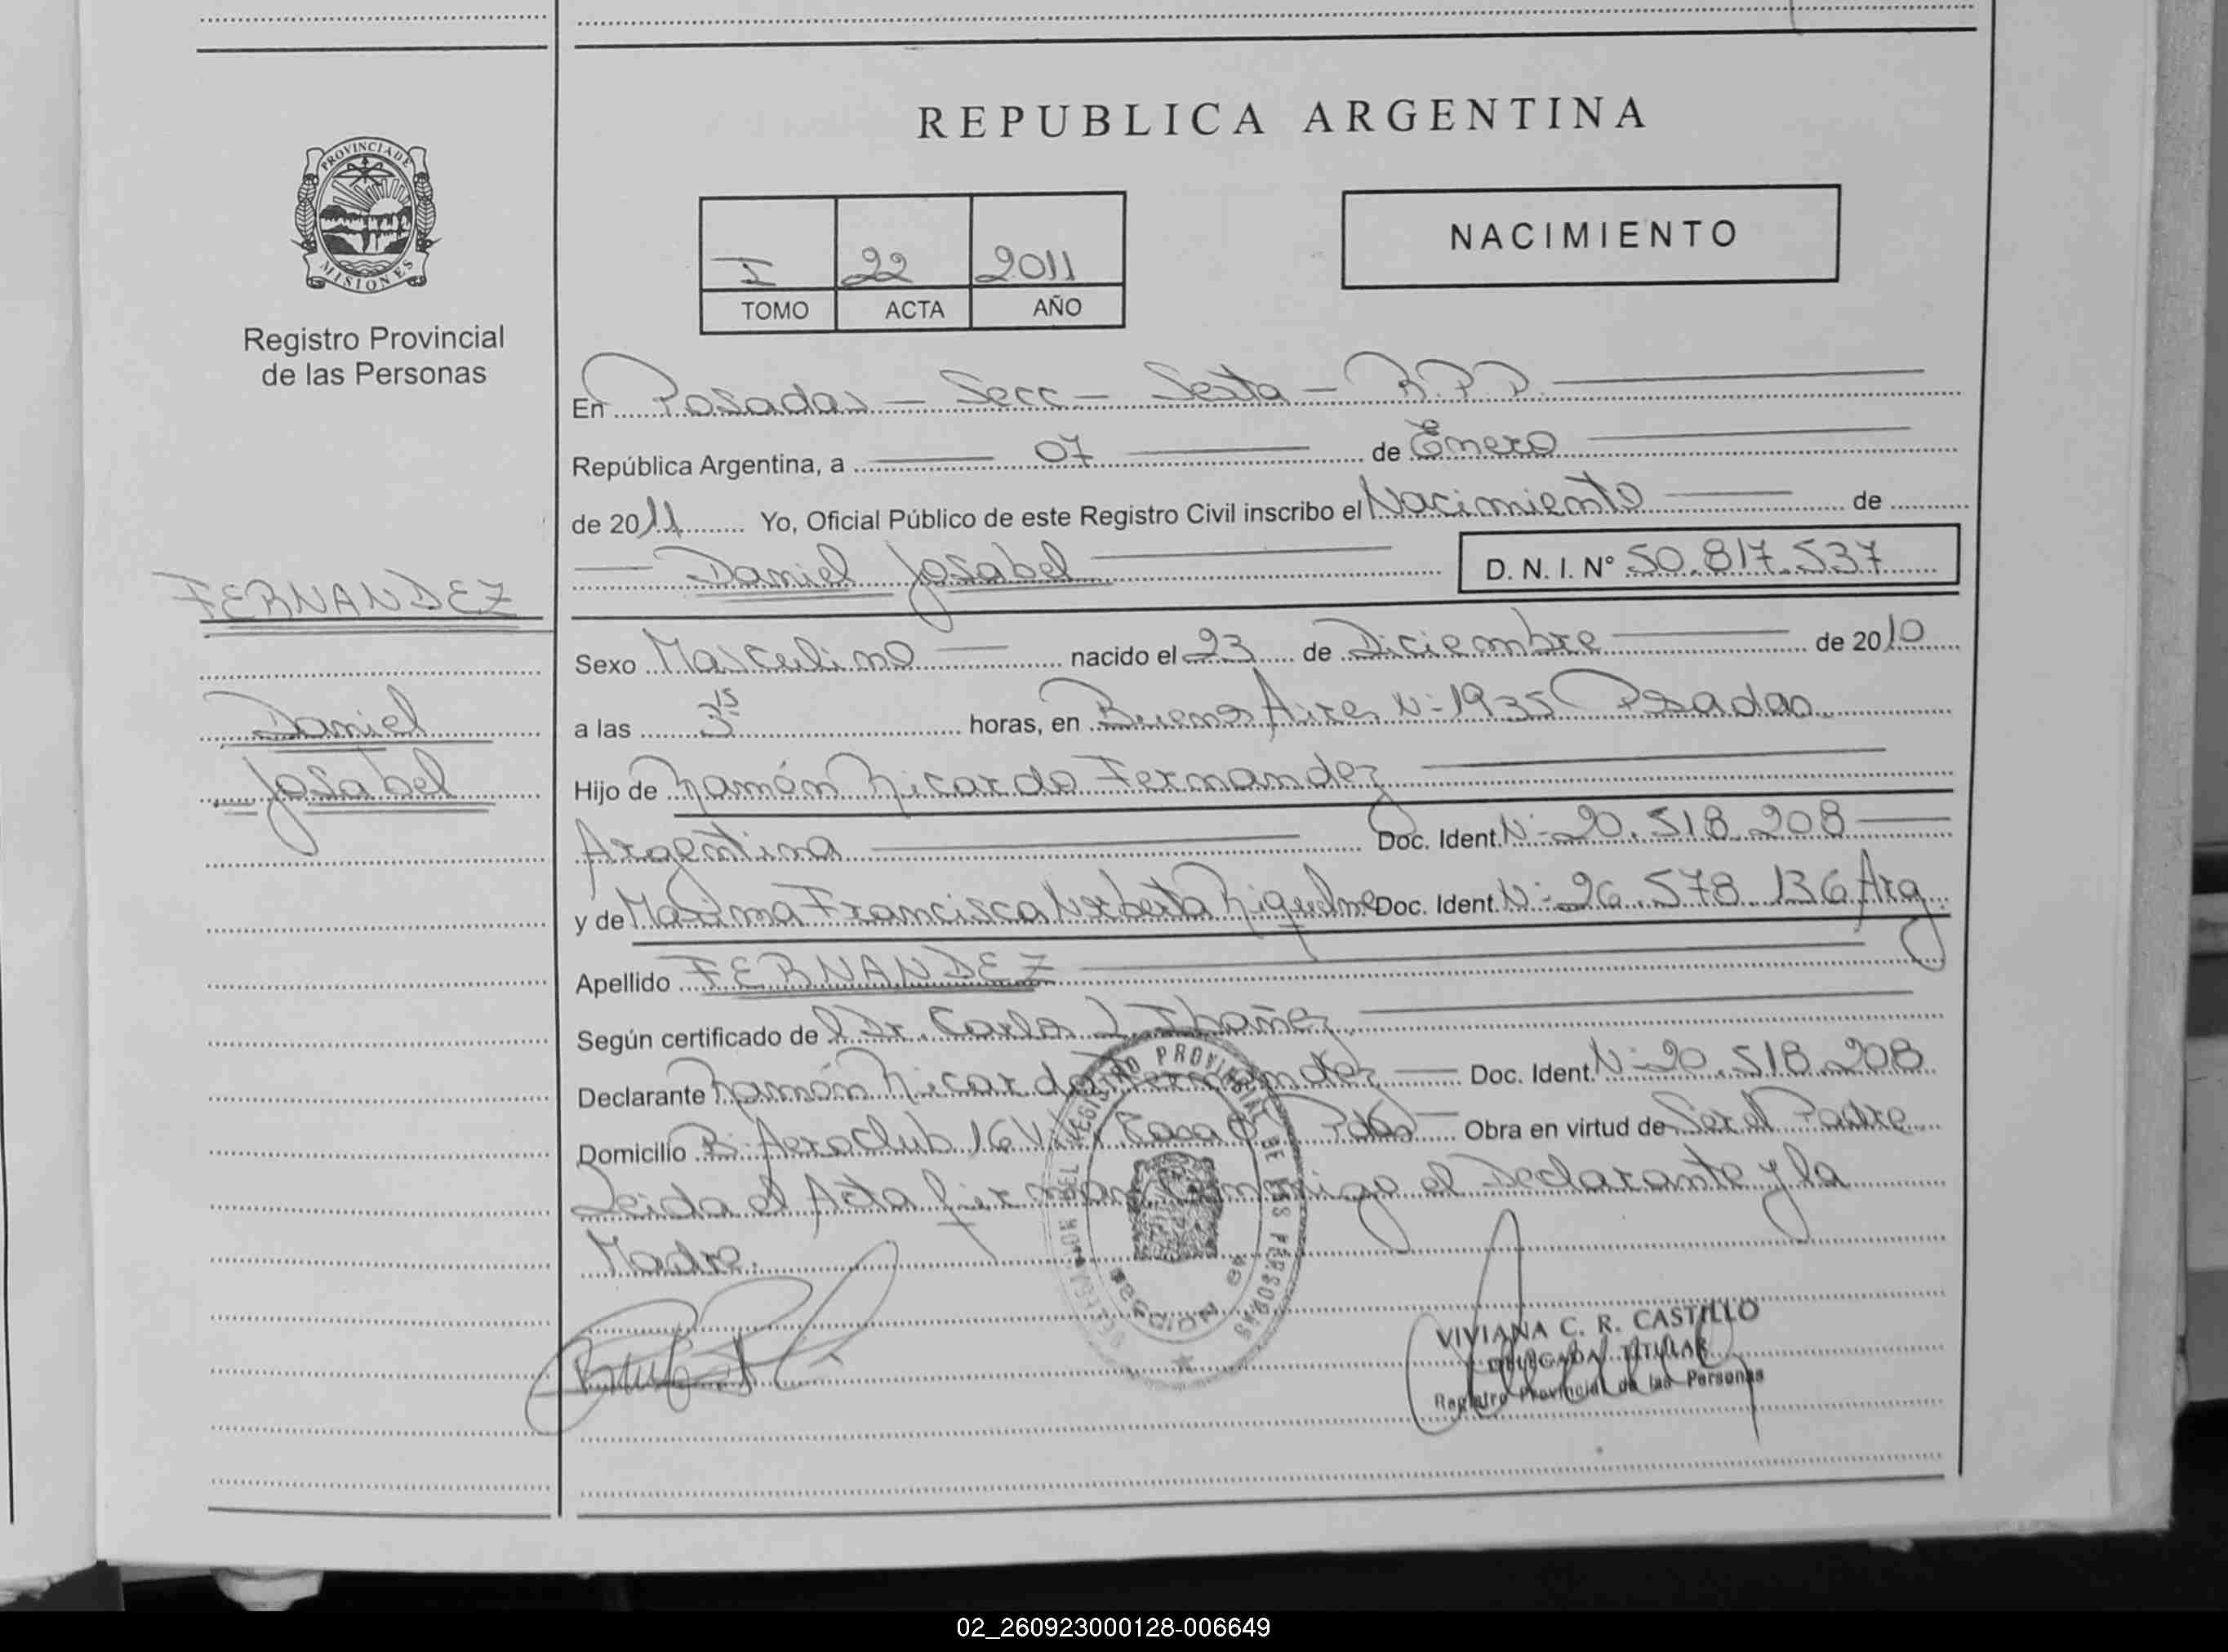 REPUBLICA ARGENTINA
PROVINCIA DE
MISIONES
Registro Provincial
de las Personas
NACIMIENTO
I 22 2011
TOMO ACTA AÑO
En Posadas - Secc - Sexta - R.P.P.
República Argentina, a 07 de Enero
de 2011 Yo, Oficial Público de este Registro Civil inscribo el Nacimiento de
Daniel Josabel D. N. I. Nº 50.817.537
FERNANDEZ
Daniel
Josabel
Sexo Masculino nacido el 23 de Diciembre de 2010
a las 3 15 horas, en Buenos Aires Nº 1935 Posadas
Hijo de Ramón Ricardo Fernandez
Argentina Doc. Ident. Nº 20.518.208
y de Maxima Francisca Norberta Riquelme Doc. Ident. Nº 26.578.136 Arg.
Apellido FERNANDEZ
Según certificado del Dr. Carlos J. Ibañez
Declarante Ramón Ricardo Fernandez Doc. Ident. Nº 20.518.208
Domicilio Bº Aeroclub 16 Casa Pdas Obra en virtud de Ser el Padre
Leida el Acta firman conmigo el Declarante y la
Madre.
REGISTRO PROVINCIAL DE LAS PERSONAS
VIVIANA C. R. CASTILLO
DELEGADA TITULAR
Registro Provincial de las Personas
02_260923000128-006649